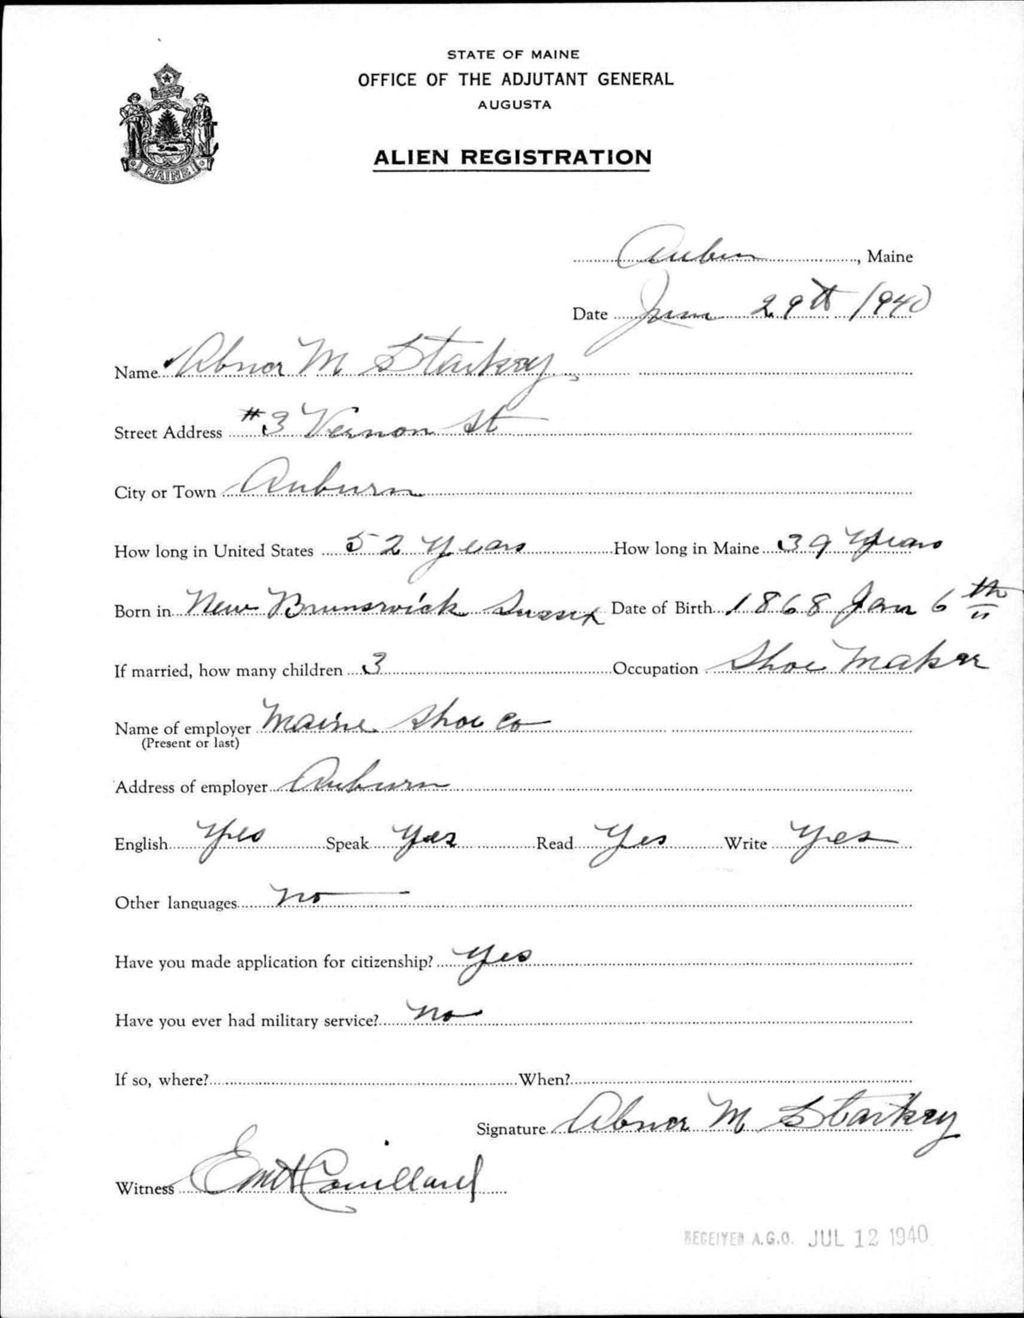 STATE OF MAINE
OFFICE OF THE ADJUTANT GENERAL
AUGUSTA
ALIEN REGISTRATION
MAINE
Auburn, Maine
Date June 29th 1940
Name Abner M Starkey
Street Address #3 Vernon St
City or Town Auburn
How long in United States 52 Years How long in Maine 39 Years
Born in New Brunswick Sussex Date of Birth 1868 Jan 6th
If married, how many children 3 Occupation Shoe Maker
Name of employer Maine Shoe Co
(Present or last)
Address of employer Auburn
English Yes Speak Yes Read Yes Write Yes
Other languages no
Have you made application for citizenship? Yes
Have you ever had military service? no
If so, where? When?
Signature Abner M Starkey
Witness Couillard
RECEIVED A.G.O. JUL 12 1940